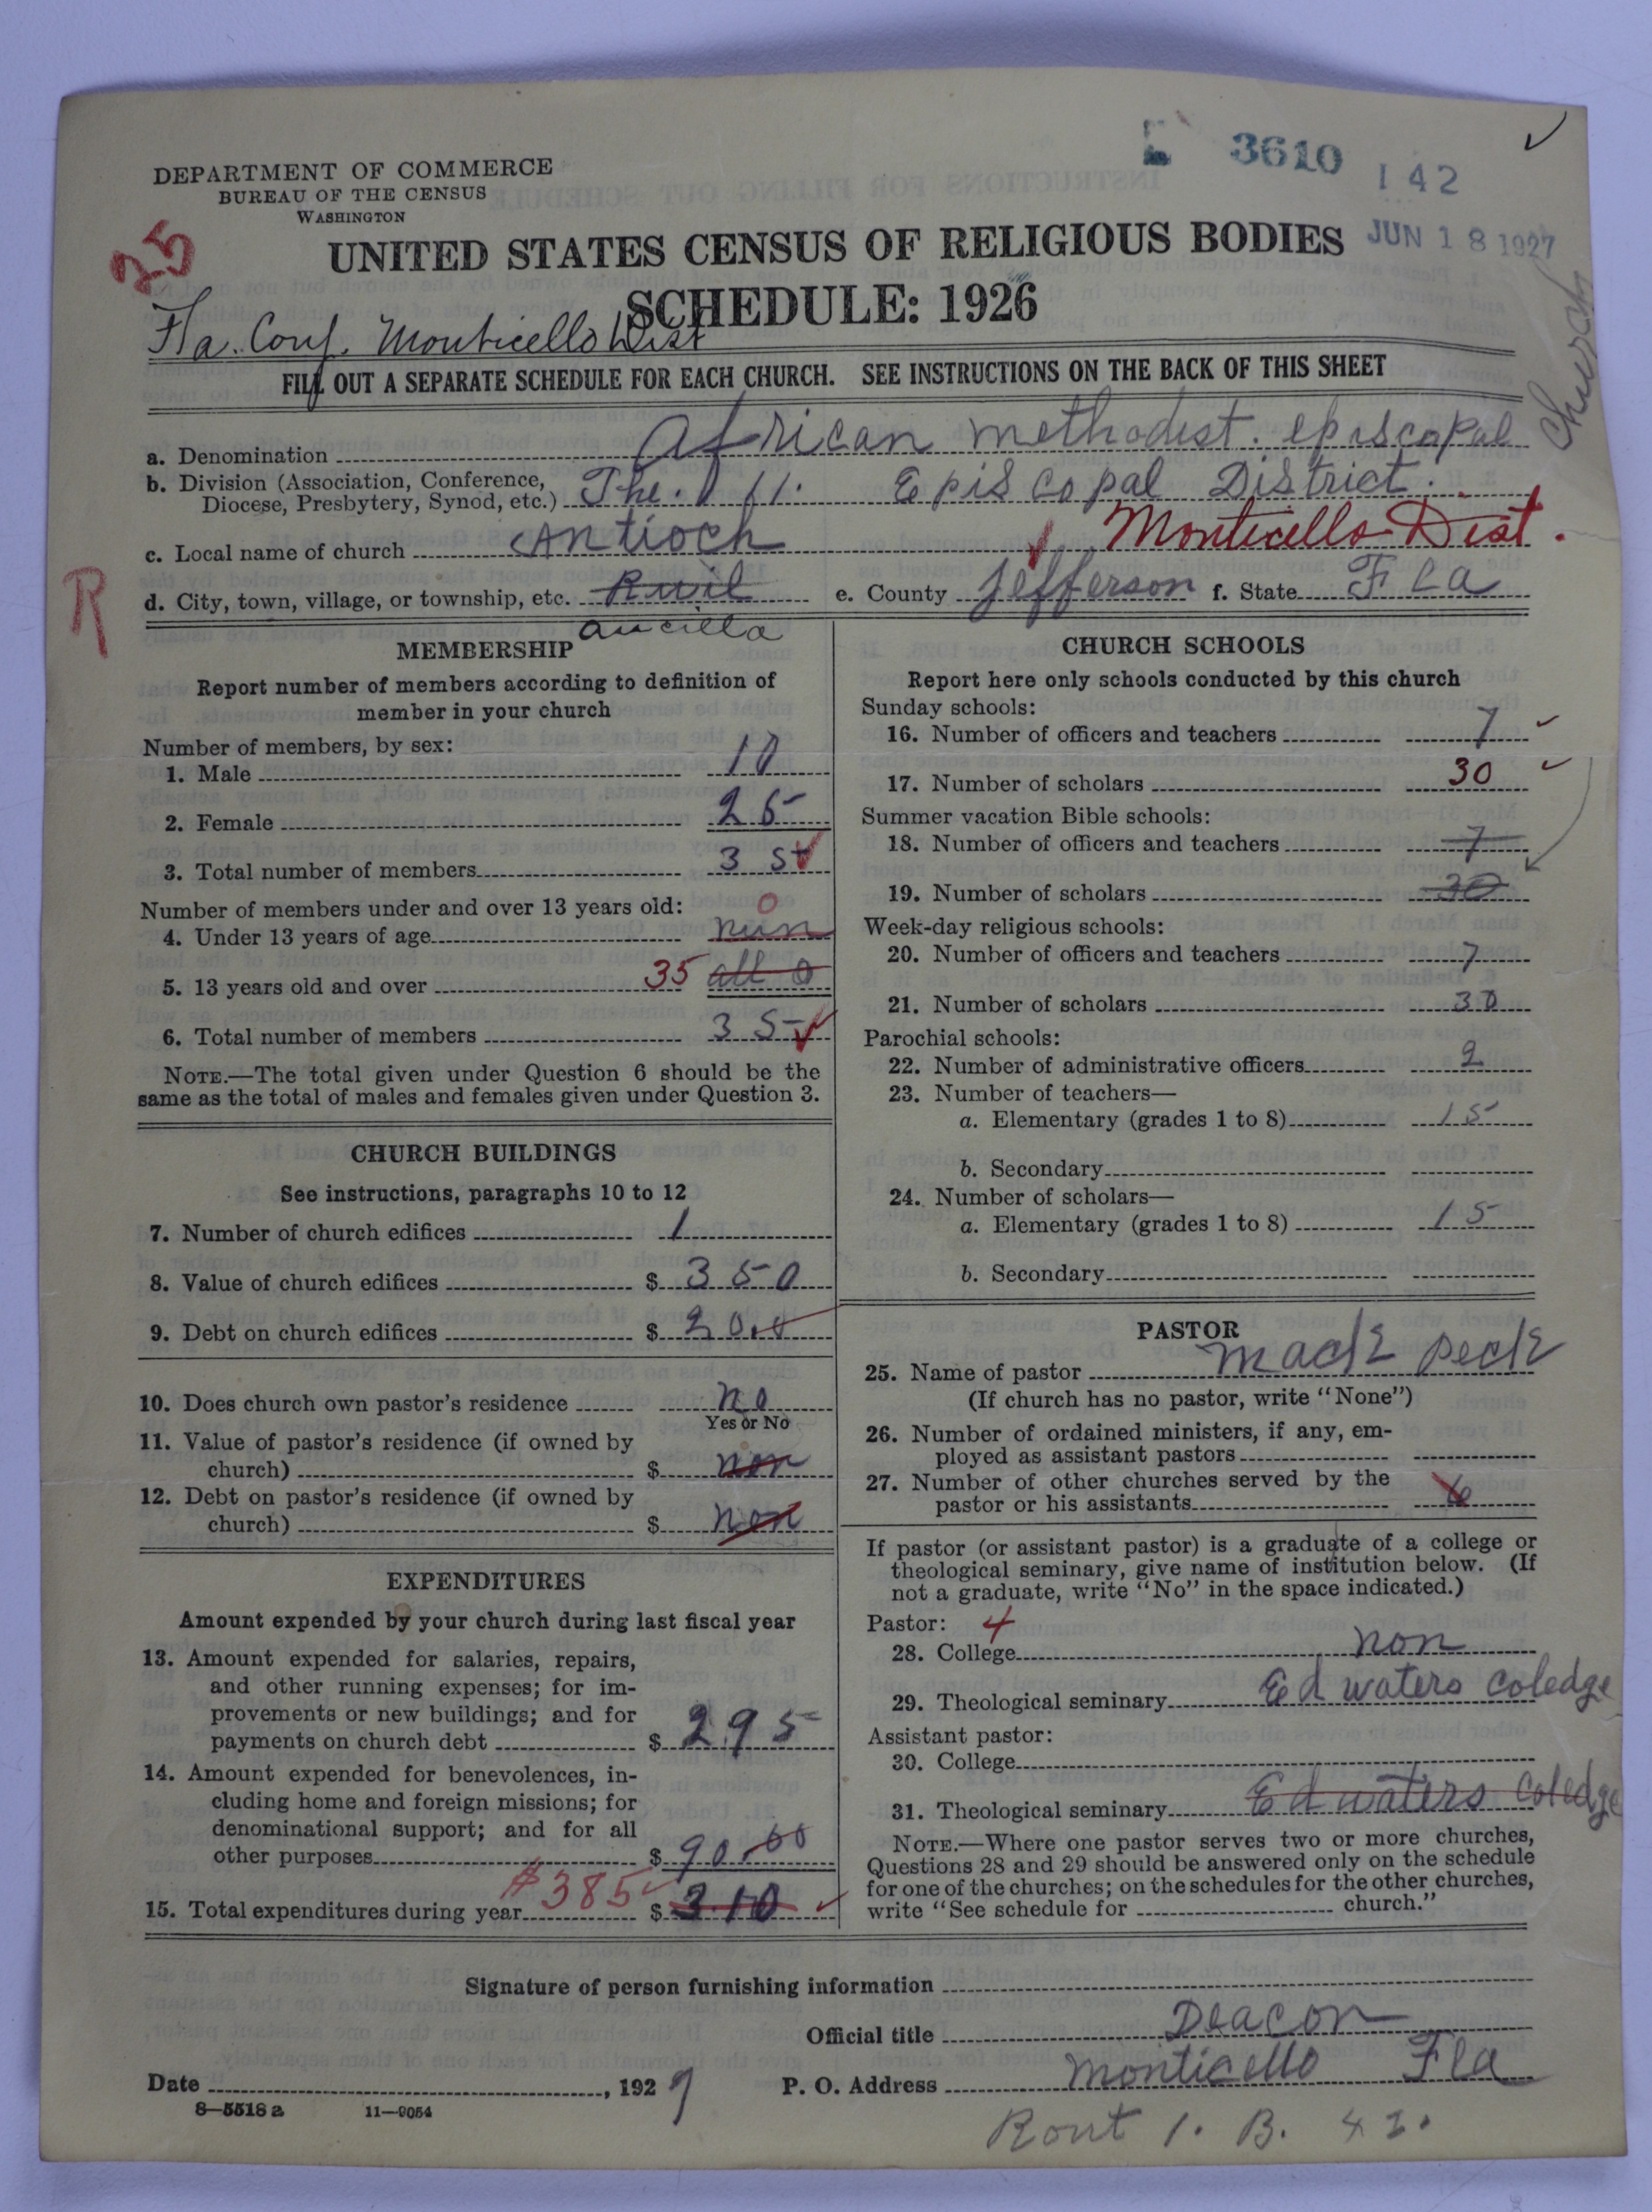 3610
142
JUN 18 1927
DEPARTMENT OF COMMERCE
BUREAU OF THE CENSUS
WASHINGTON
25
UNITED STATES CENSUS OF RELIGIOUS BODIES
SCHEDULE: 1926
Fla. Conf. Monticello Dist
FILL OUT A SEPARATE SCHEDULE FOR EACH CHURCH. SEE INSTRUCTIONS ON THE BACK OF THIS SHEET
a. Denomination African methodist. episcopal Church
b. Division (Association, Conference, Diocese, Presbytery, Synod, etc.) The. 11. Episcopal District.
c. Local name of church Antioch Monticello Dist.
R
d. City, town, village, or township, etc. e. County Jefferson f. State Fla
aucilla
MEMBERSHIP
Report number of members according to definition of
member in your church
Number of members, by sex:
1. Male 10
2. Female 25
3. Total number of members 35
Number of members under and over 13 years old: 0
4. Under 13 years of age nun
5. 13 years old and over 35 all 0
6. Total number of members 35
NOTE.—The total given under Question 6 should be the
same as the total of males and females given under Question 3.
CHURCH BUILDINGS
See instructions, paragraphs 10 to 12
7. Number of church edifices 1
8. Value of church edifices $ 350
9. Debt on church edifices $ 20.0
10. Does church own pastor's residence no
Yes or No
11. Value of pastor's residence (if owned by
church) $ non
12. Debt on pastor's residence (if owned by
church) $ non
EXPENDITURES
Amount expended by your church during last fiscal year
13. Amount expended for salaries, repairs,
and other running expenses; for im-
provements or new buildings; and for
payments on church debt $ 295
14. Amount expended for benevolences, in-
cluding home and foreign missions; for
denominational support; and for all
other purposes $ 90.00
15. Total expenditures during year $385 $ 310
CHURCH SCHOOLS
Report here only schools conducted by this church
Sunday schools:
16. Number of officers and teachers 7
17. Number of scholars 30
Summer vacation Bible schools:
18. Number of officers and teachers 7
19. Number of scholars 30
Week-day religious schools:
20. Number of officers and teachers 7
21. Number of scholars 30
Parochial schools:
22. Number of administrative officers 2
23. Number of teachers—
a. Elementary (grades 1 to 8) 15
b. Secondary
24. Number of scholars—
a. Elementary (grades 1 to 8) 15
b. Secondary
PASTOR
25. Name of pastor Mack Peck
(If church has no pastor, write "None")
26. Number of ordained ministers, if any, em-
ployed as assistant pastors
27. Number of other churches served by the
pastor or his assistants 6
If pastor (or assistant pastor) is a graduate of a college or
theological seminary, give name of institution below. (If
not a graduate, write "No" in the space indicated.)
Pastor: 4
28. College non
29. Theological seminary Ed waters coledge
Assistant pastor:
30. College
31. Theological seminary Ed waters coledge
NOTE.—Where one pastor serves two or more churches,
Questions 28 and 29 should be answered only on the schedule
for one of the churches; on the schedules for the other churches,
write "See schedule for church."
Signature of person furnishing information
Official title Deacon
Date , 1927 P. O. Address Monticello Fla
8—5518 a 11—9054
Rout 1. B. 42.